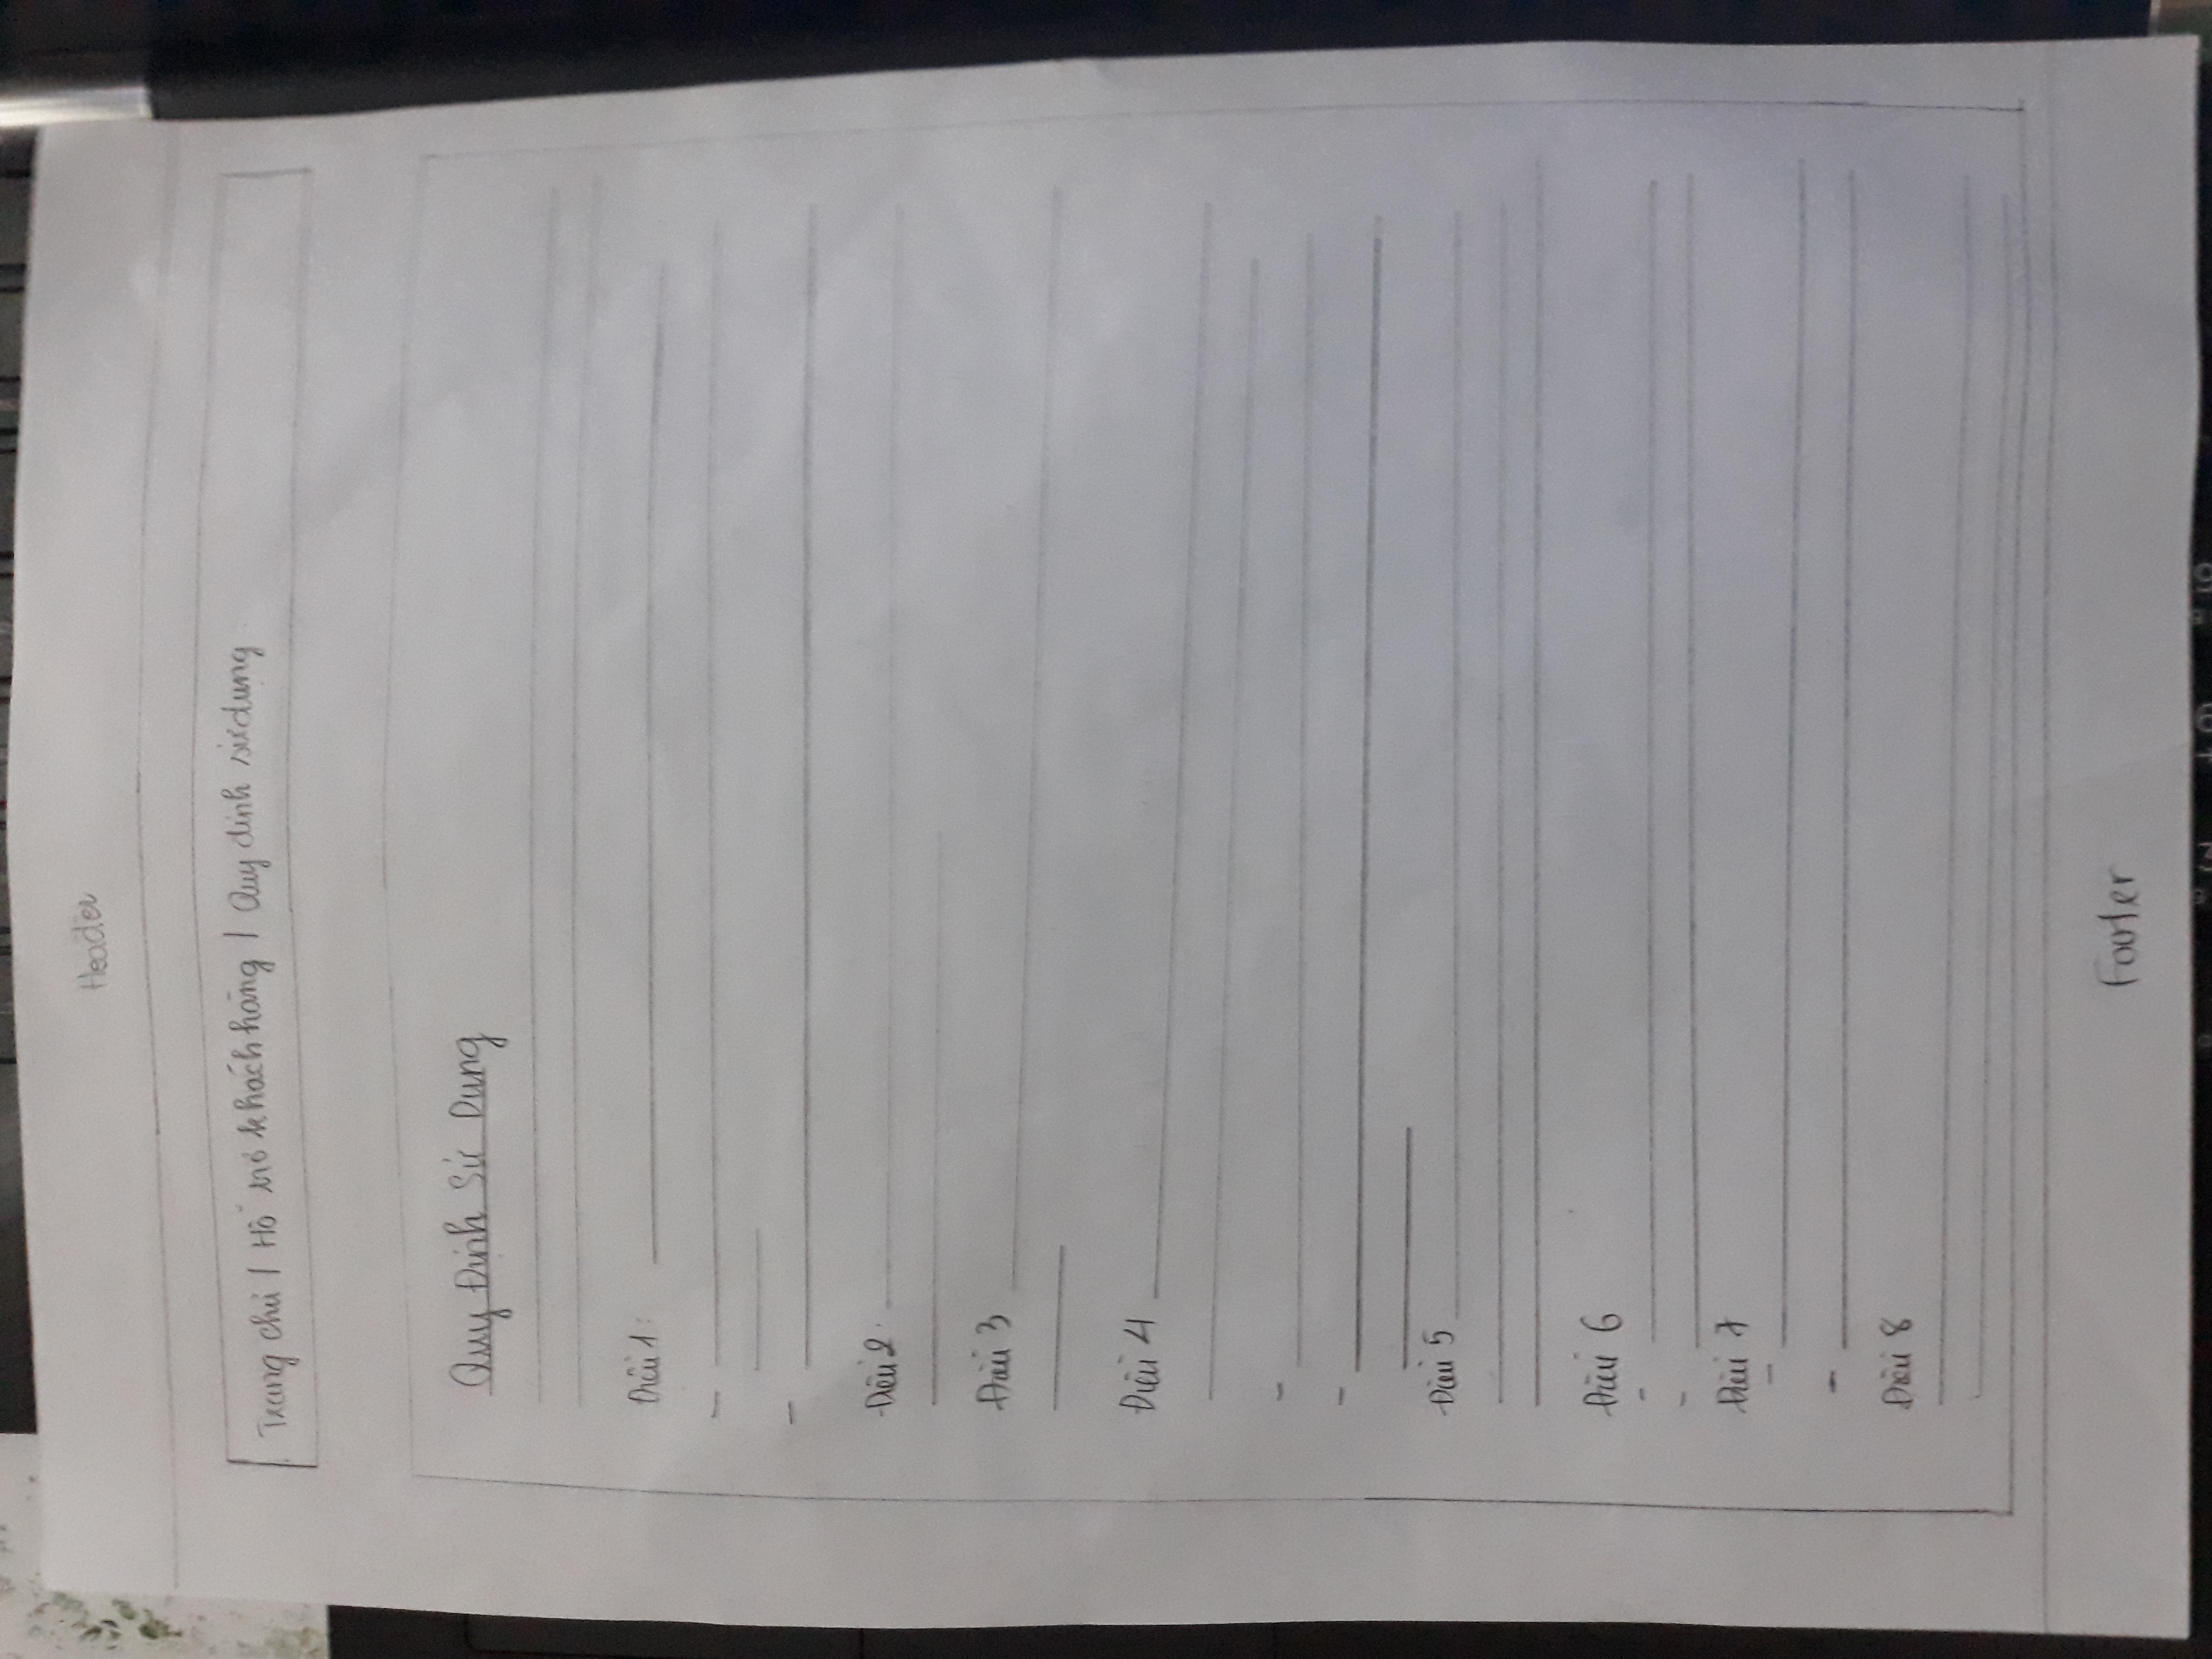 Header
Trang chủ / Hỗ trợ khách hàng / Quy định sử dụng
Quy Định Sử Dụng
Điều 1:
Điều 2:
Điều 3
Điều 4
Điều 5
Điều 6
Điều 7
Điều 8
Footer